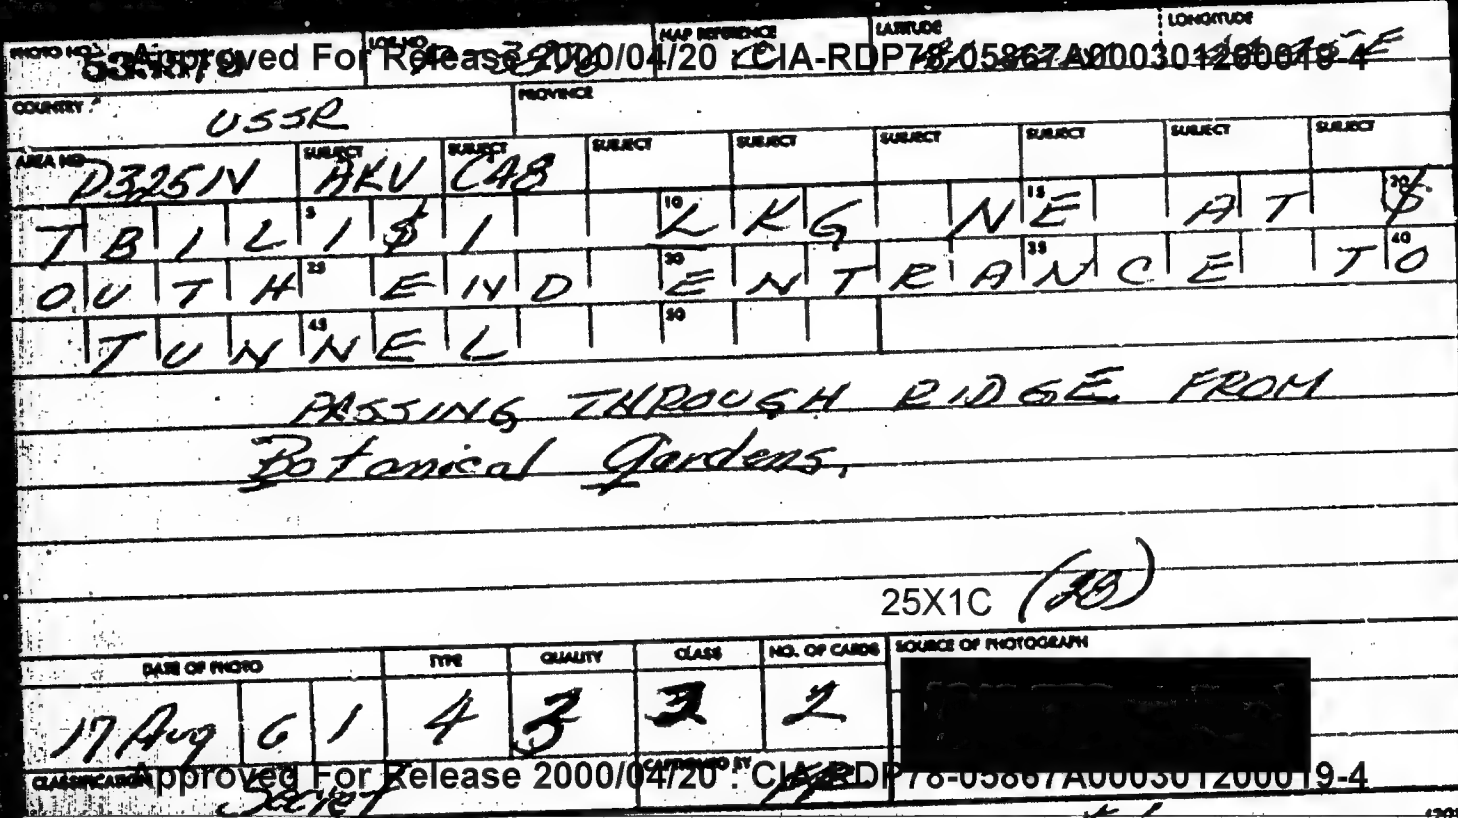 PHOTO NO. LOC. NO. MAP REFERENCE LATITUDE LONGITUDE
Approved For Release 2000/04/20 : CIA-RDP78-05867A000301200019-4
COUNTRY USSR PROVINCE
AREA NO. D3251V SUBJECT AKV SUBJECT CA8 SUBJECT SUBJECT SUBJECT SUBJECT SUBJECT SUBJECT
TBILISI 5 10 LKG NE 15 AT S 20
OUTH 25 END 30 ENTRANCE 35 TO 40
TUNNEL 45 50
PASSING THROUGH RIDGE FROM
Botanical Gardens.
25X1C (20)
DATE OF PHOTO TYPE QUALITY CLASS NO. OF CARDS SOURCE OF PHOTOGRAPH
17 Aug 61 4 3 3 2
CLASSIFICATION Secret CAPTIONED BY
Approved For Release 2000/04/20 : CIA-RDP78-05867A000301200019-4